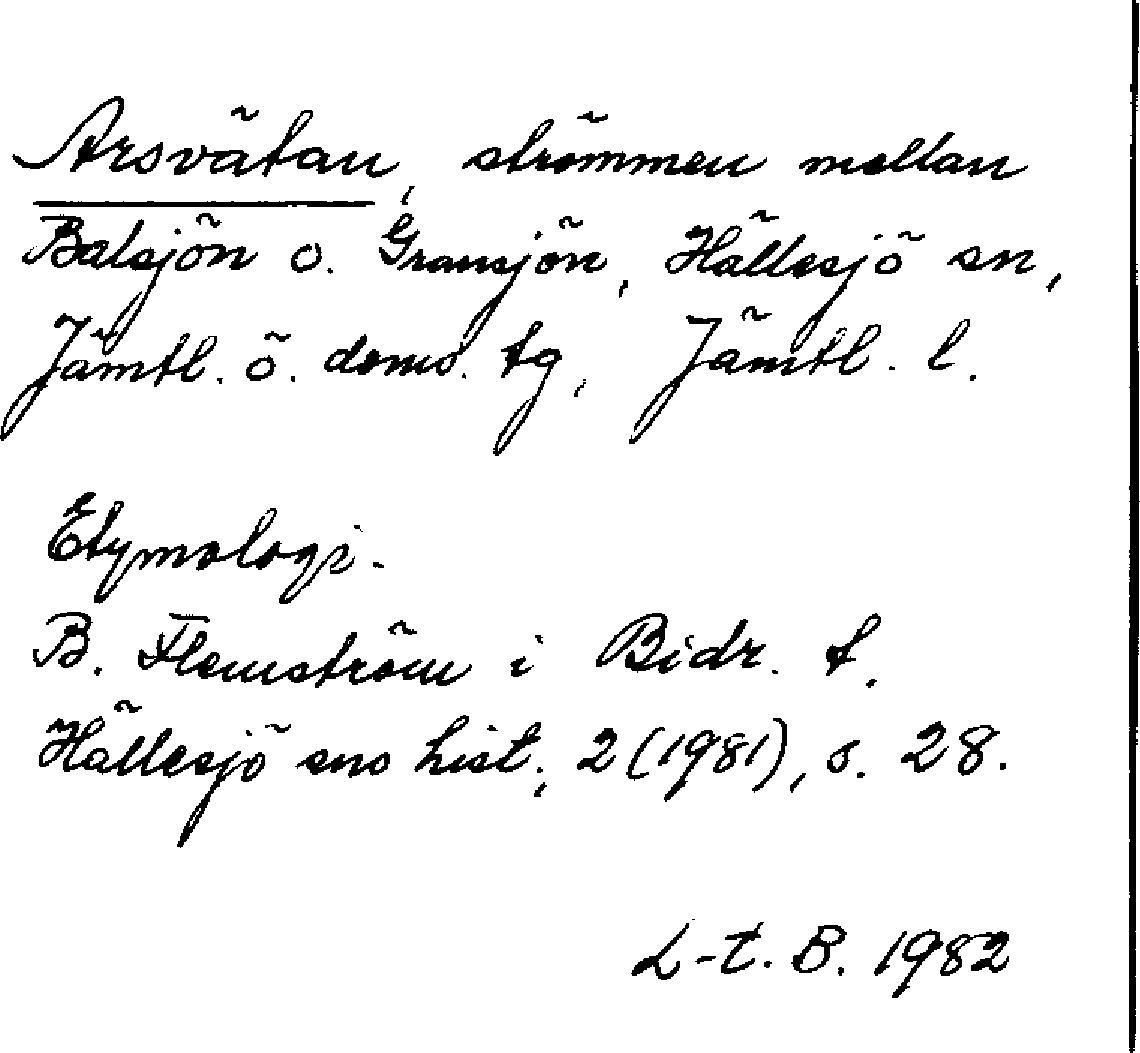 Arsvätan, strömmen mellan
Balsjön o. Gransjön, Hällesjö sn,
Jämtl. ö. doms. tg, Jämtl. l.
Etymologi.
B. Flemström i Bidr. t.
Hällesjö sns hist., 2 (1981), s. 28.
L-t. B. 1982